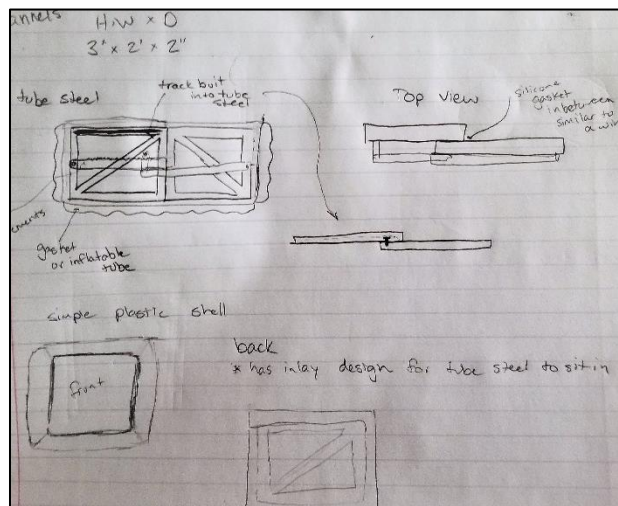 annels H.W x D
3' x 2' x 2"
tube steel
track buit
into tube
steel
Top view
silicone
gasket
inbetween
similar to
a
gasket
or inflatable
tube
simple plastic shell
front
back
* has inlay design for tube steel to sit in